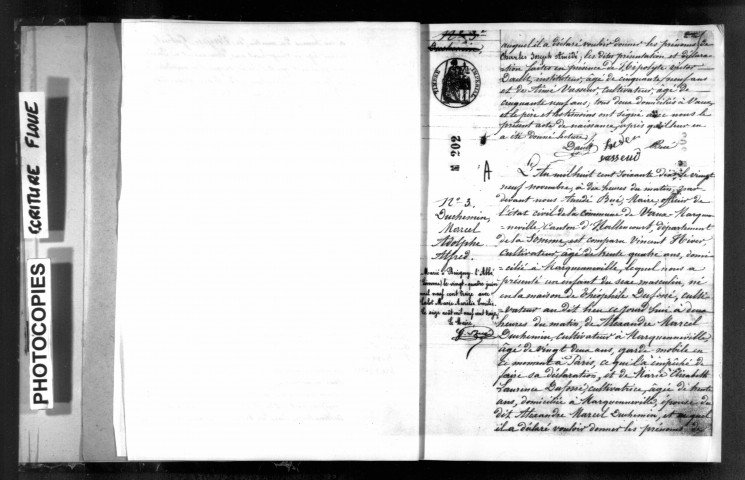 ECRITURE FLOUE
PHOTOCOPIES
Nº 3.
Duchemin,
auquel il a déclaré vouloir donner les prénoms de
Charles Joseph les dites présentation et déclara-
ation faites en présence de Hippolyte
Dault, instituteur, âgé de cinquante neuf ans
et de Aimé Vasseur, cultivateur, âgé de
cinquante neuf ans, tous deux domiciliés à Vaux,
et le père et les témoins ont signé avec nous le
présent acte de naissance, après qu'il leur en
a été donné lecture.
Dault
Vasseur
Nº 202
A
Nº 3.
Duchemin,
Marcel
Adolphe
Alfred.
L'An mil huit cent soixante dix, le vingt
neuf novembre, à dix heures du matin, par
devant nous Bué, Maire, officier de
l'état civil de la commune de Vaux-Marquen-
=neville, Canton d'Hallencourt, département
de la Somme, est comparu Vincent
cultivateur, âgé de trente quatre ans, domi-
cilié à Marquenneville, lequel nous a
présenté un enfant du sexe masculin, né
en la maison de Théophile Dufossé, culti-
vateur au dit lieu ce jour d'hui à deux
heures du matin, de Alexandre Marcel
Duchemin, cultivateur à Marquenneville,
âgé de vingt deux ans, garde mobile en
ce moment à Paris, ce qui l'a empêché de
faire sa déclaration, et de Marie Elisabeth
Laurence Dufossé, cultivatrice, âgée de trente
ans, domiciliée à Marquenneville, épouse du
dit Alexandre Marcel Duchemin, et auquel
il a déclaré vouloir donner les prénoms de
Marié à
(Somme) le vingt-quatre juin
mil neuf cent treize avec
Marie
le seize août mil neuf cent treize,
le Maire